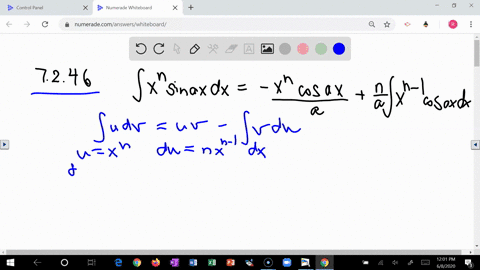 Control Panel
Numerade Whiteboard
numerade.com/answers/whiteboard/
7.2.46
∫xⁿ sin ax dx = -xⁿ cos ax / a + n/a ∫xⁿ⁻¹ cos ax dx
∫u dv = uv - ∫v du
u = xⁿ du = nxⁿ⁻¹ dx
12:01 PM
5/8/2020